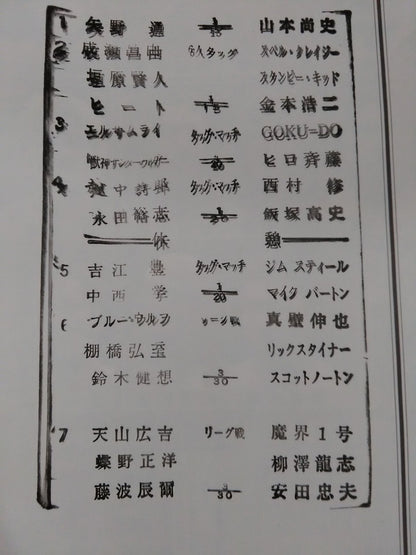 1 矢野通 1/15 山本尚史
2 成瀬昌由 6人タッグ スペル・クレイジー
垣原賢人 スタンピー・キッド
ヒート 1/15 金本浩二
3 エル・サムライ タッグ・マッチ GOKU=DO
獣神サンダー・ライガー 1/20 ヒロ斉藤
4 タッグ・マッチ 西村修
永田裕志 1/30 飯塚高史
休憩
5 吉江豊 タッグ・マッチ ジム スティール
中西学 1/20 マイク バートン
6 ブルー・ウルフ リーグ戦 真壁伸也
棚橋弘至 リックスタイナー
鈴木健想 3/30 スコットノートン
7 天山広吉 リーグ戦 魔界1号
蝶野正洋 柳澤龍志
藤波辰爾 3/30 安田忠夫